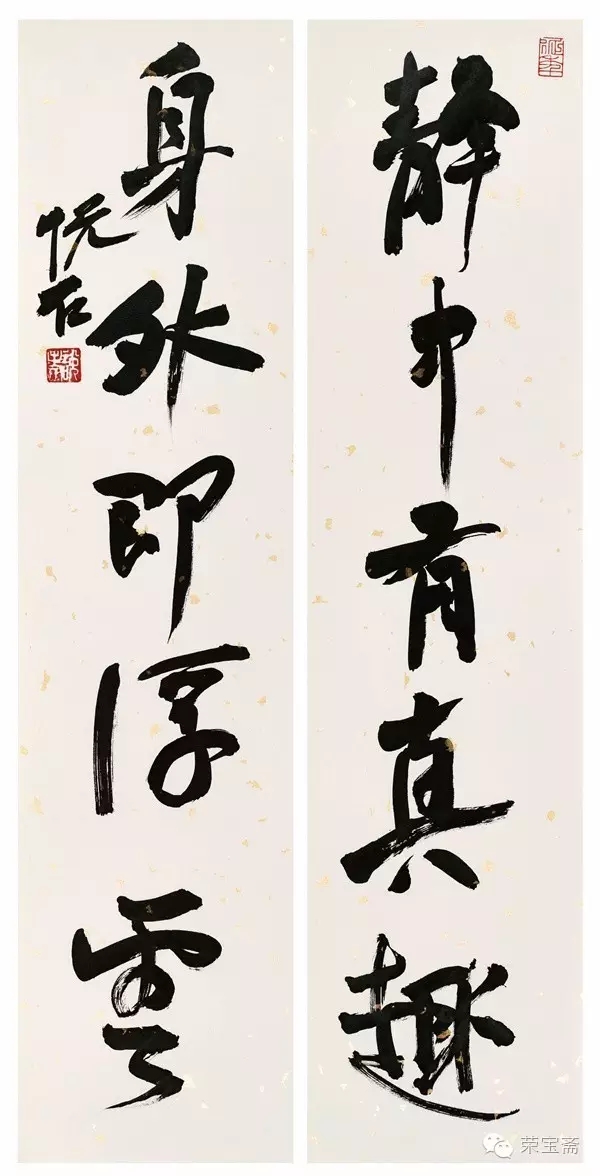 静中有真趣
身外即浮雲
荣宝斋